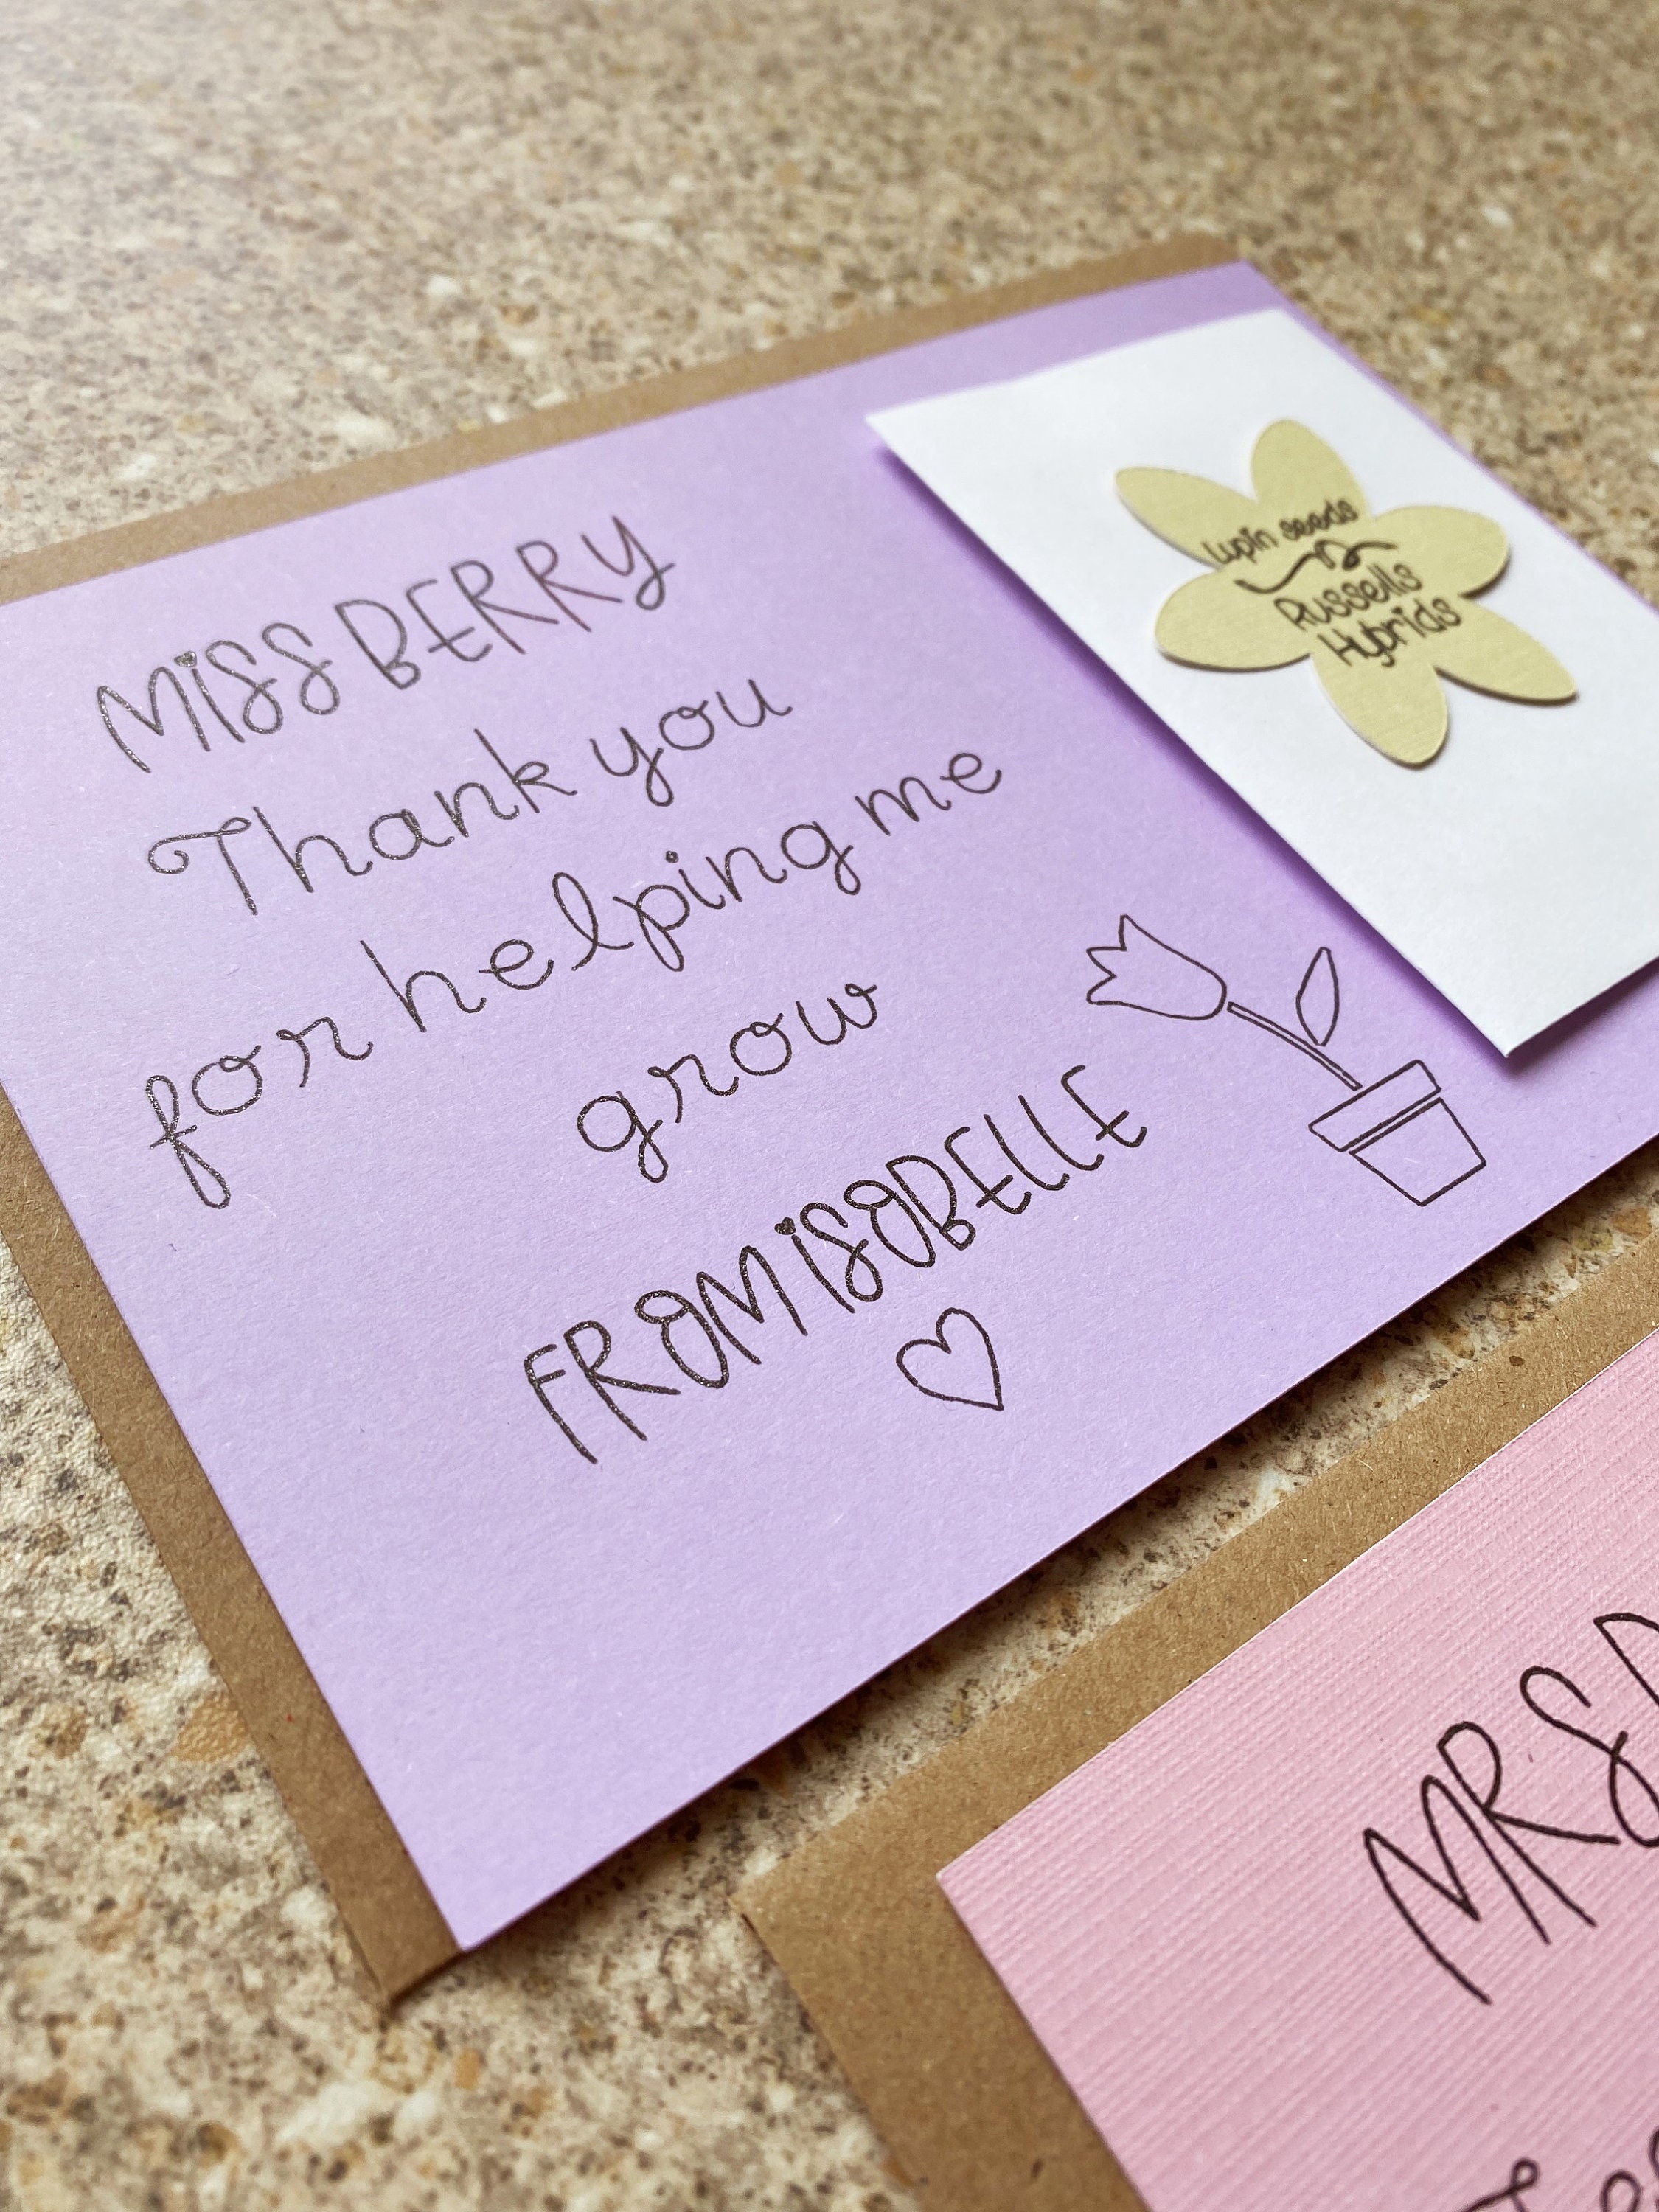 MiSS BERRY
Thank you
for helping me
grow
FROM iSOBELLE
Lupin seeds
Russells
Hybrids
MRS